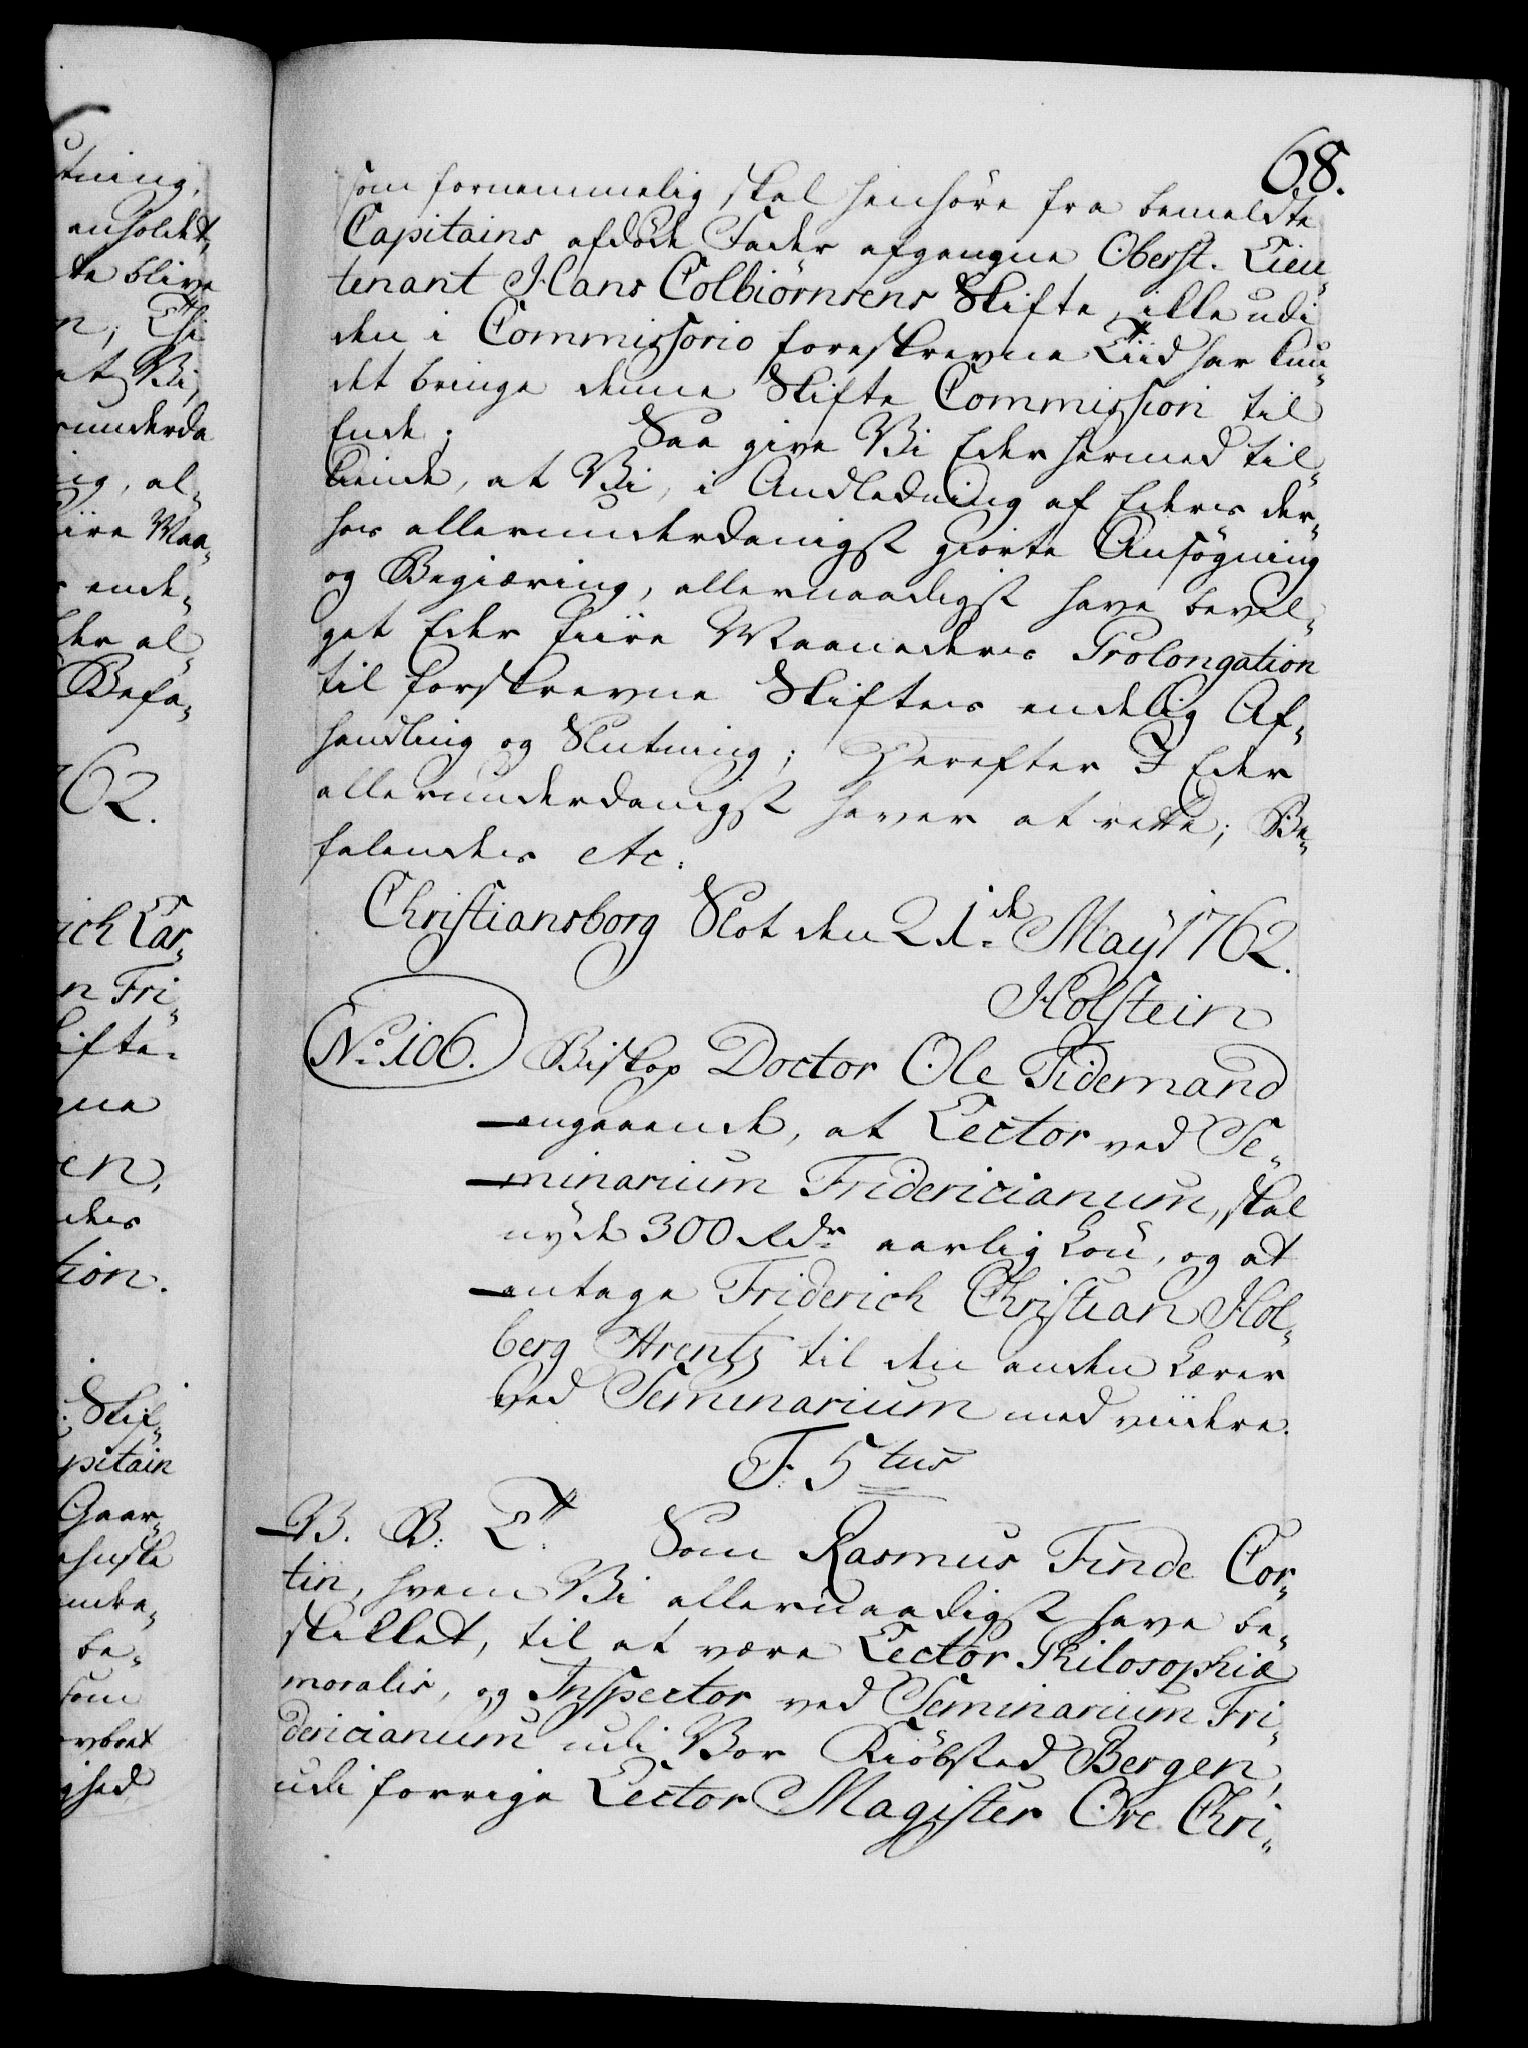 68.
som fornemmelig skal henhøre fra bemeldte
Capitains afdøde Fader afgangne Oberst-Lieu-
tenant Hans Colbiörnsens Skifte, ikke udi
den i Commissorio foreskrevne Tiid har kun-
det bringe denne Skifte Commission til
Ende; Saa give Vi Eder hermed til-
kiende, at Vi, i Andledning af Eders der-
hos allerunderdanigst giorte Ansøgning
og Begiæring, allernaadigst have bevil-
get Eder fiire Maaneders Prolongation
til forskrevne Skiftes endelig Af-
handling og Slutning; Herefter I Eder
allerunderdanigst haver at rette; Be-
falendes etc:
Christiansborg Slot den 21de May 1762.
Holstein
No. 106. Biskop Doctor Ole Tidemand
angaaende, at Lector ved Se-
minarium Fridericianum, skal
nyde 300 Rdr aarlig Lön, og at
antage Friderich Christian Hol-
berg Arentz til den anden Lærer
ved Seminarium med viidere.
F. 5tus
V. B: T. Som Rasmus Finde Cor-
tin, hvem Vi allernaadigst have be-
skikket, til at være Lector Philosophiæ
moralis, og Inspector ved Seminarium Fri-
dericianum udi Vor Kiöbsted Bergen,
udi forrige Lector Magister Ove Chri-